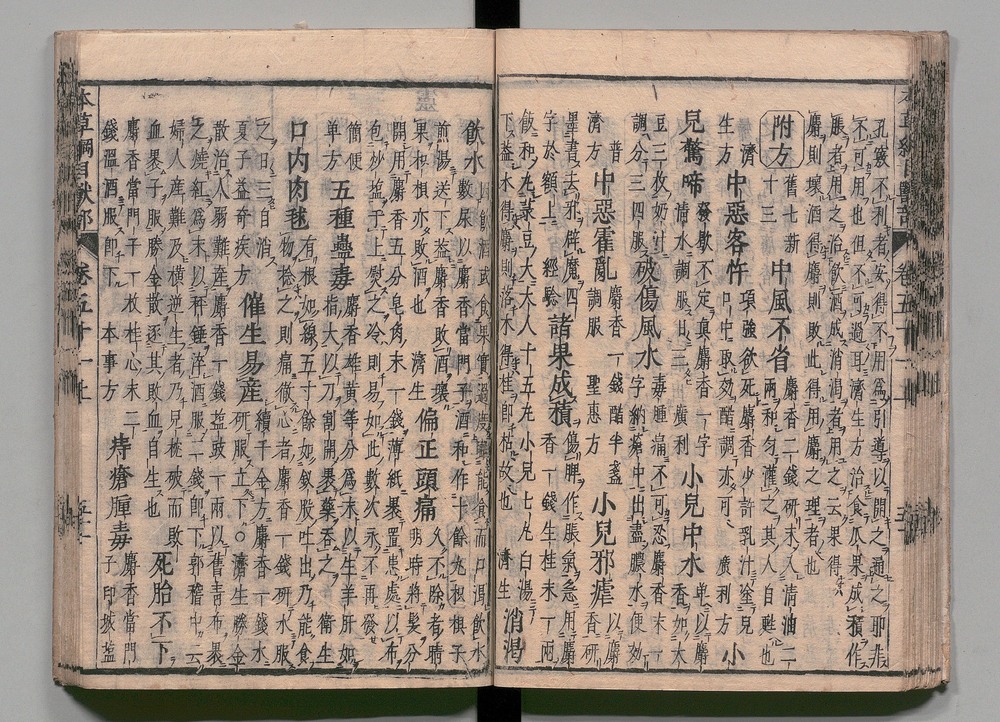 孔竅不利者安得不用爲引導以開之通之耶非
不可用也但不可過耳濟生方治食瓜果成積作
脹者用之治飲酒成消渴者用之云果得
麝則壞酒得麝則敗此得用麝之理者也
附方 舊七新十三 中風不省 麝香二錢研末入清油二兩和匀灌之其人自甦也
濟生方 中惡客忤 項強欲死麝香少許乳汁塗兒口中取效醋調亦可 廣利方 小
見驚啼 發歇不定真麝香一字清水調服日三 廣利 小兒中水 單以麝香如大
豆三枚奶汁調分三四服 破傷風水 毒腫痛不可忍麝香末一字納瘡中出盡膿水便效 普
濟方 中惡霍亂 麝香一錢醋半盞調服 聖惠方 小兒邪瘧 麝香研墨書去邪辟魔四
字於額上 經驗 諸果成積 傷脾作脹氣急用麝香一錢生桂末一兩
飯和丸菉豆大大人十五丸小兒七丸白湯下蓋木得麝則落木得桂即枯故也 濟生 消渴
飲水 因飲酒或食果實過度能食而口渴飲水數尿以麝香當門子酒和作十餘丸枳椇子
煎湯送下蓋麝香敗酒壞果枳椇亦敗酒也 濟生 偏正頭痛 久不除者晴明時將髮分
開用麝香五分皂角末一錢薄紙裹置患處以布包炒塩于上熨之冷則易如此數次永不再發 簡便
單方 五種蠱毒 麝香雄黄等分爲末以生羊肝如指大以刀割開裹藥吞之 衛生
口内肉毬 有根如線五寸餘如釵股吐出乃能食物捻之則痛徹心者麝香一錢研水服之日三自消
夏子益奇疾方 催生易産 續十全方麝香一錢水研服立下○濟生勝金散治人弱難産麝香一錢塩豉一兩以舊青布裹
之燒紅爲末以秤錘淬酒服二錢即下郭稽中云婦人産難及横逆生者乃兒枕破而敗
血裹子服勝金散逐其敗血自生也 死胎不下 麝香當門子一枚桂心末二
錢溫酒服即下 本事方 痔瘡腫毒 麝香當門子印城塩